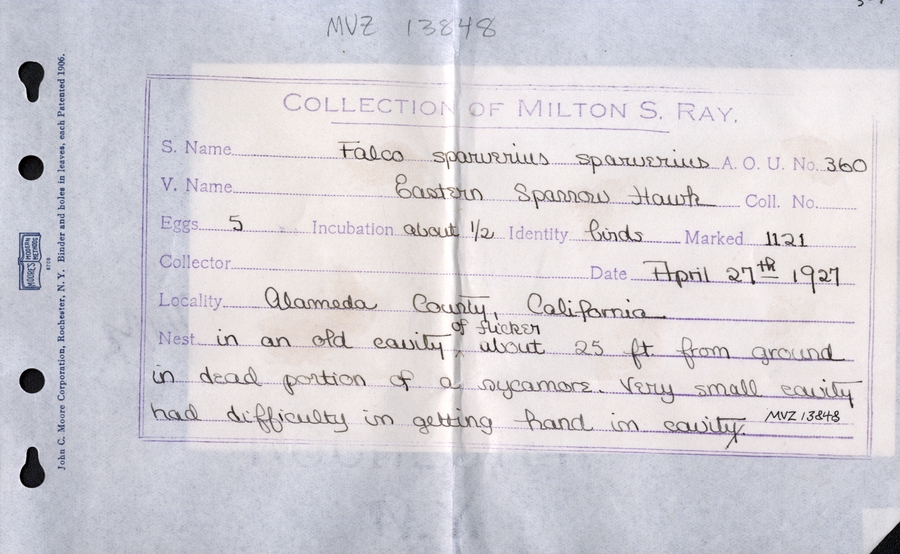 MVZ 13848
COLLECTION OF MILTON S. RAY.
S. Name Falco sparverius sparverius A. O. U. No. 360
V. Name Eastern Sparrow Hawk Coll. No.
Eggs 5 Incubation about 1/2 Identity birds Marked 1121
Collector Date April 27th 1927
Locality Alameda County, California
of flicker
Nest in an old cavity ‸ about 25 ft. from ground
in dead portion of a sycamore. Very small cavity
had difficulty in getting hand in cavity. MVZ 13848
John C. Moore Corporation, Rochester, N. Y. Binder and holes in leaves, each Patented 1906.
MOORE'S MODERN METHODS